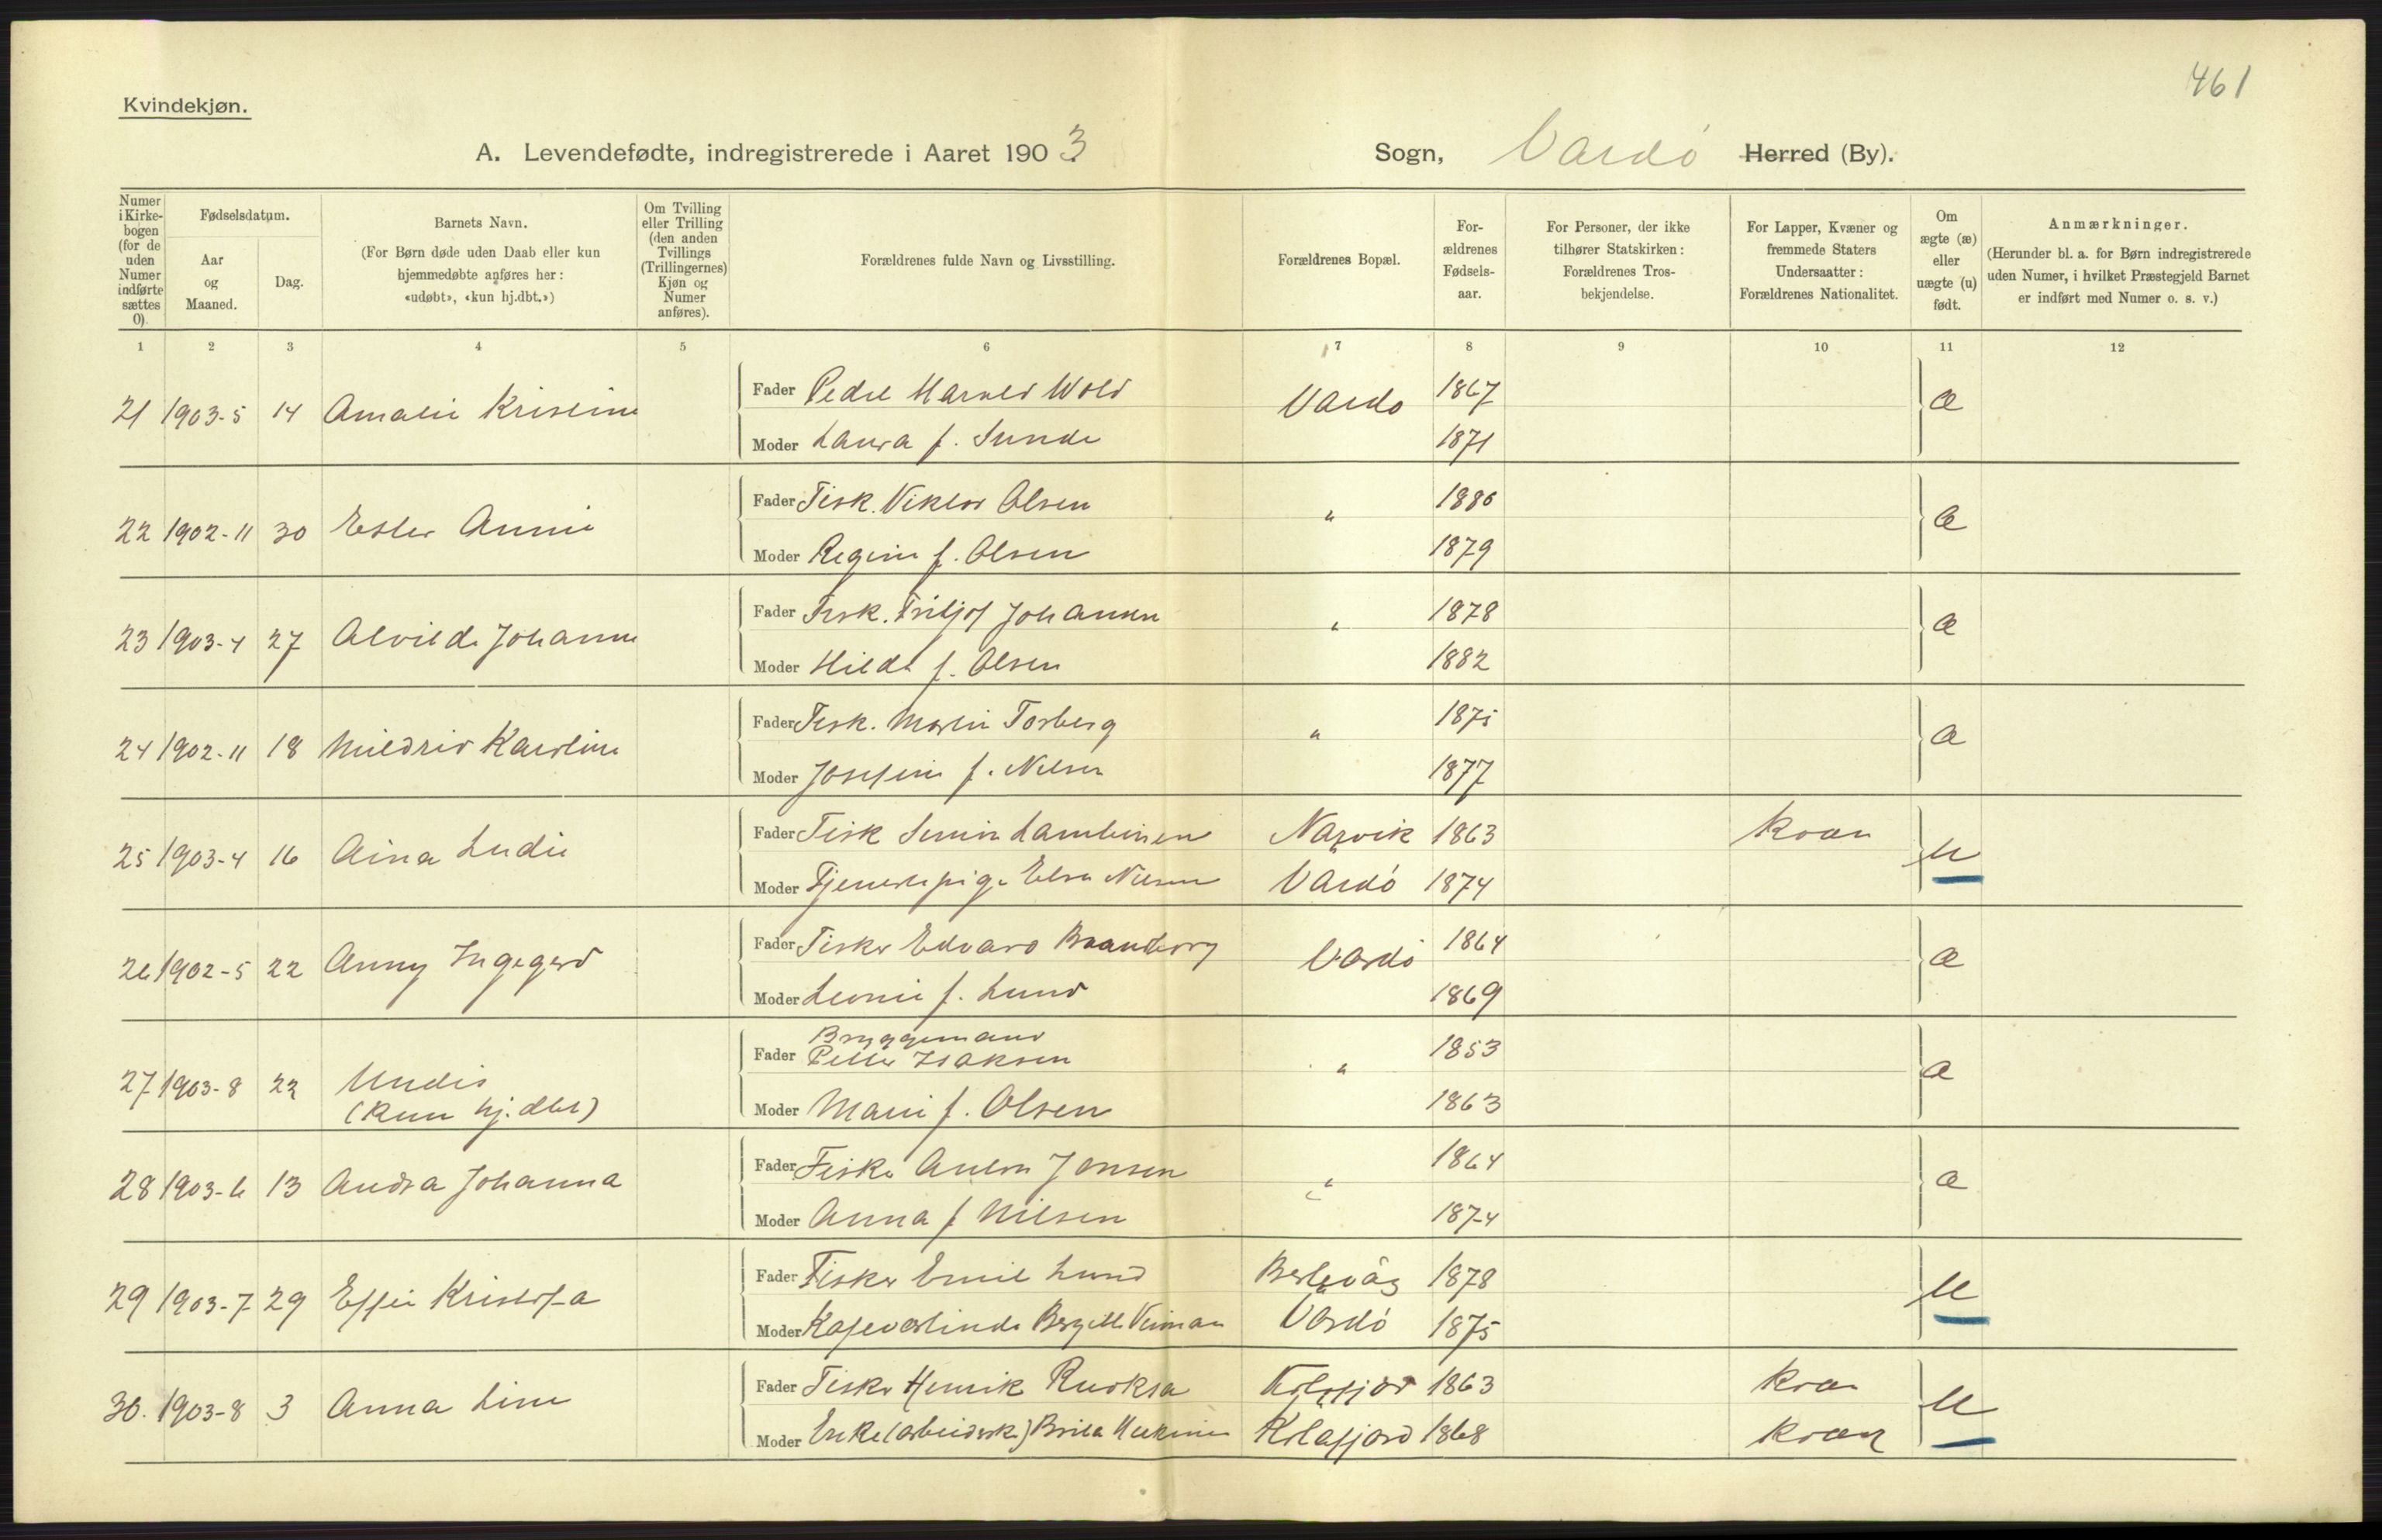 461
Kvindekjøn.
A. Levendefødte, indregistrerede i Aaret 1903 Sogn, Vardö Herred (By).
Numer i Kirkebogen (for de uden Numer indførte sættes 0).
Fødselsdatum.
Aar og Maaned.
Dag.
Barnets Navn.
(For Børn døde uden Daab eller kun hjemmedøbte anføres her: «udøbt», «kun hj.dbt.»)
Om Tvilling eller Trilling (den anden Tvillings (Trillingernes) Kjøn og Numer anføres).
Forældrenes fulde Navn og Livsstilling.
Forældrenes Bopæl.
Forældrenes Fødselsaar.
For Personer, der ikke tilhører Statskirken: Forældrenes Trosbekjendelse.
For Lapper, Kvæner og fremmede Staters Undersaatter: Forældrenes Nationalitet.
Om ægte (æ) eller uægte (u) født.
Anmærkninger.
(Herunder bl. a. for Børn indregistrerede uden Numer, i hvilket Præstegjeld Barnet er indført med Numer o. s. v.)
1 2 3 4 5 6 7 8 9 10 11 12
21 1903-5 14 Amalie Kristine Fader Peder Wold Vardö 1867 æ
Moder Laura f. Sunde 1871
22 1902-11 30 Ester Annie Fader Fisk. Viktor Olsen " 1880 æ
Moder Regine f. Olsen 1879
23 1903-4 27 Alvilde Johanne Fader Fisk. Fritjof Johansen " 1878 æ
Moder Hilda f. Olsen 1882
24 1902-11 18 Mildrid Karoline Fader Fisk. Martin Torberg " 1875 æ
Moder Josefine f. Nilsen 1877
25 1903-4 16 Aina Ludie Fader Fisk Narvik 1863 kvæn u
Moder Tjenestepige Elsa Nilsen Vardö 1874
26 1902-5 22 Anny Ingegerd Fader Fisker Edvard Brandborg Vardö 1864 æ
Moder Leonie f. Lund 1869
27 1903-8 22 Undis Fader Bryggemand Petter Isaksen " 1853 æ
(kun hj. dbt) Moder Marie f. Olsen 1863
28 1903-6 13 Andra Johanna Fader Fisker Anton Jensen " 1864 æ
Moder Anna f. Nilsen 1874
29 1903-7 29 Effie Kristofa Fader Fisker Emil Lund Berlevåg 1878 u
Moder Kafeværtinde Bergitte Vardö 1875
30. 1903-8 3 Anna Line Fader Fisker Henrik Ruoksa Kolafjord 1863 kvæn u
Moder Enke (arbeidersk.) Brita Kolafjord 1868 kvæn